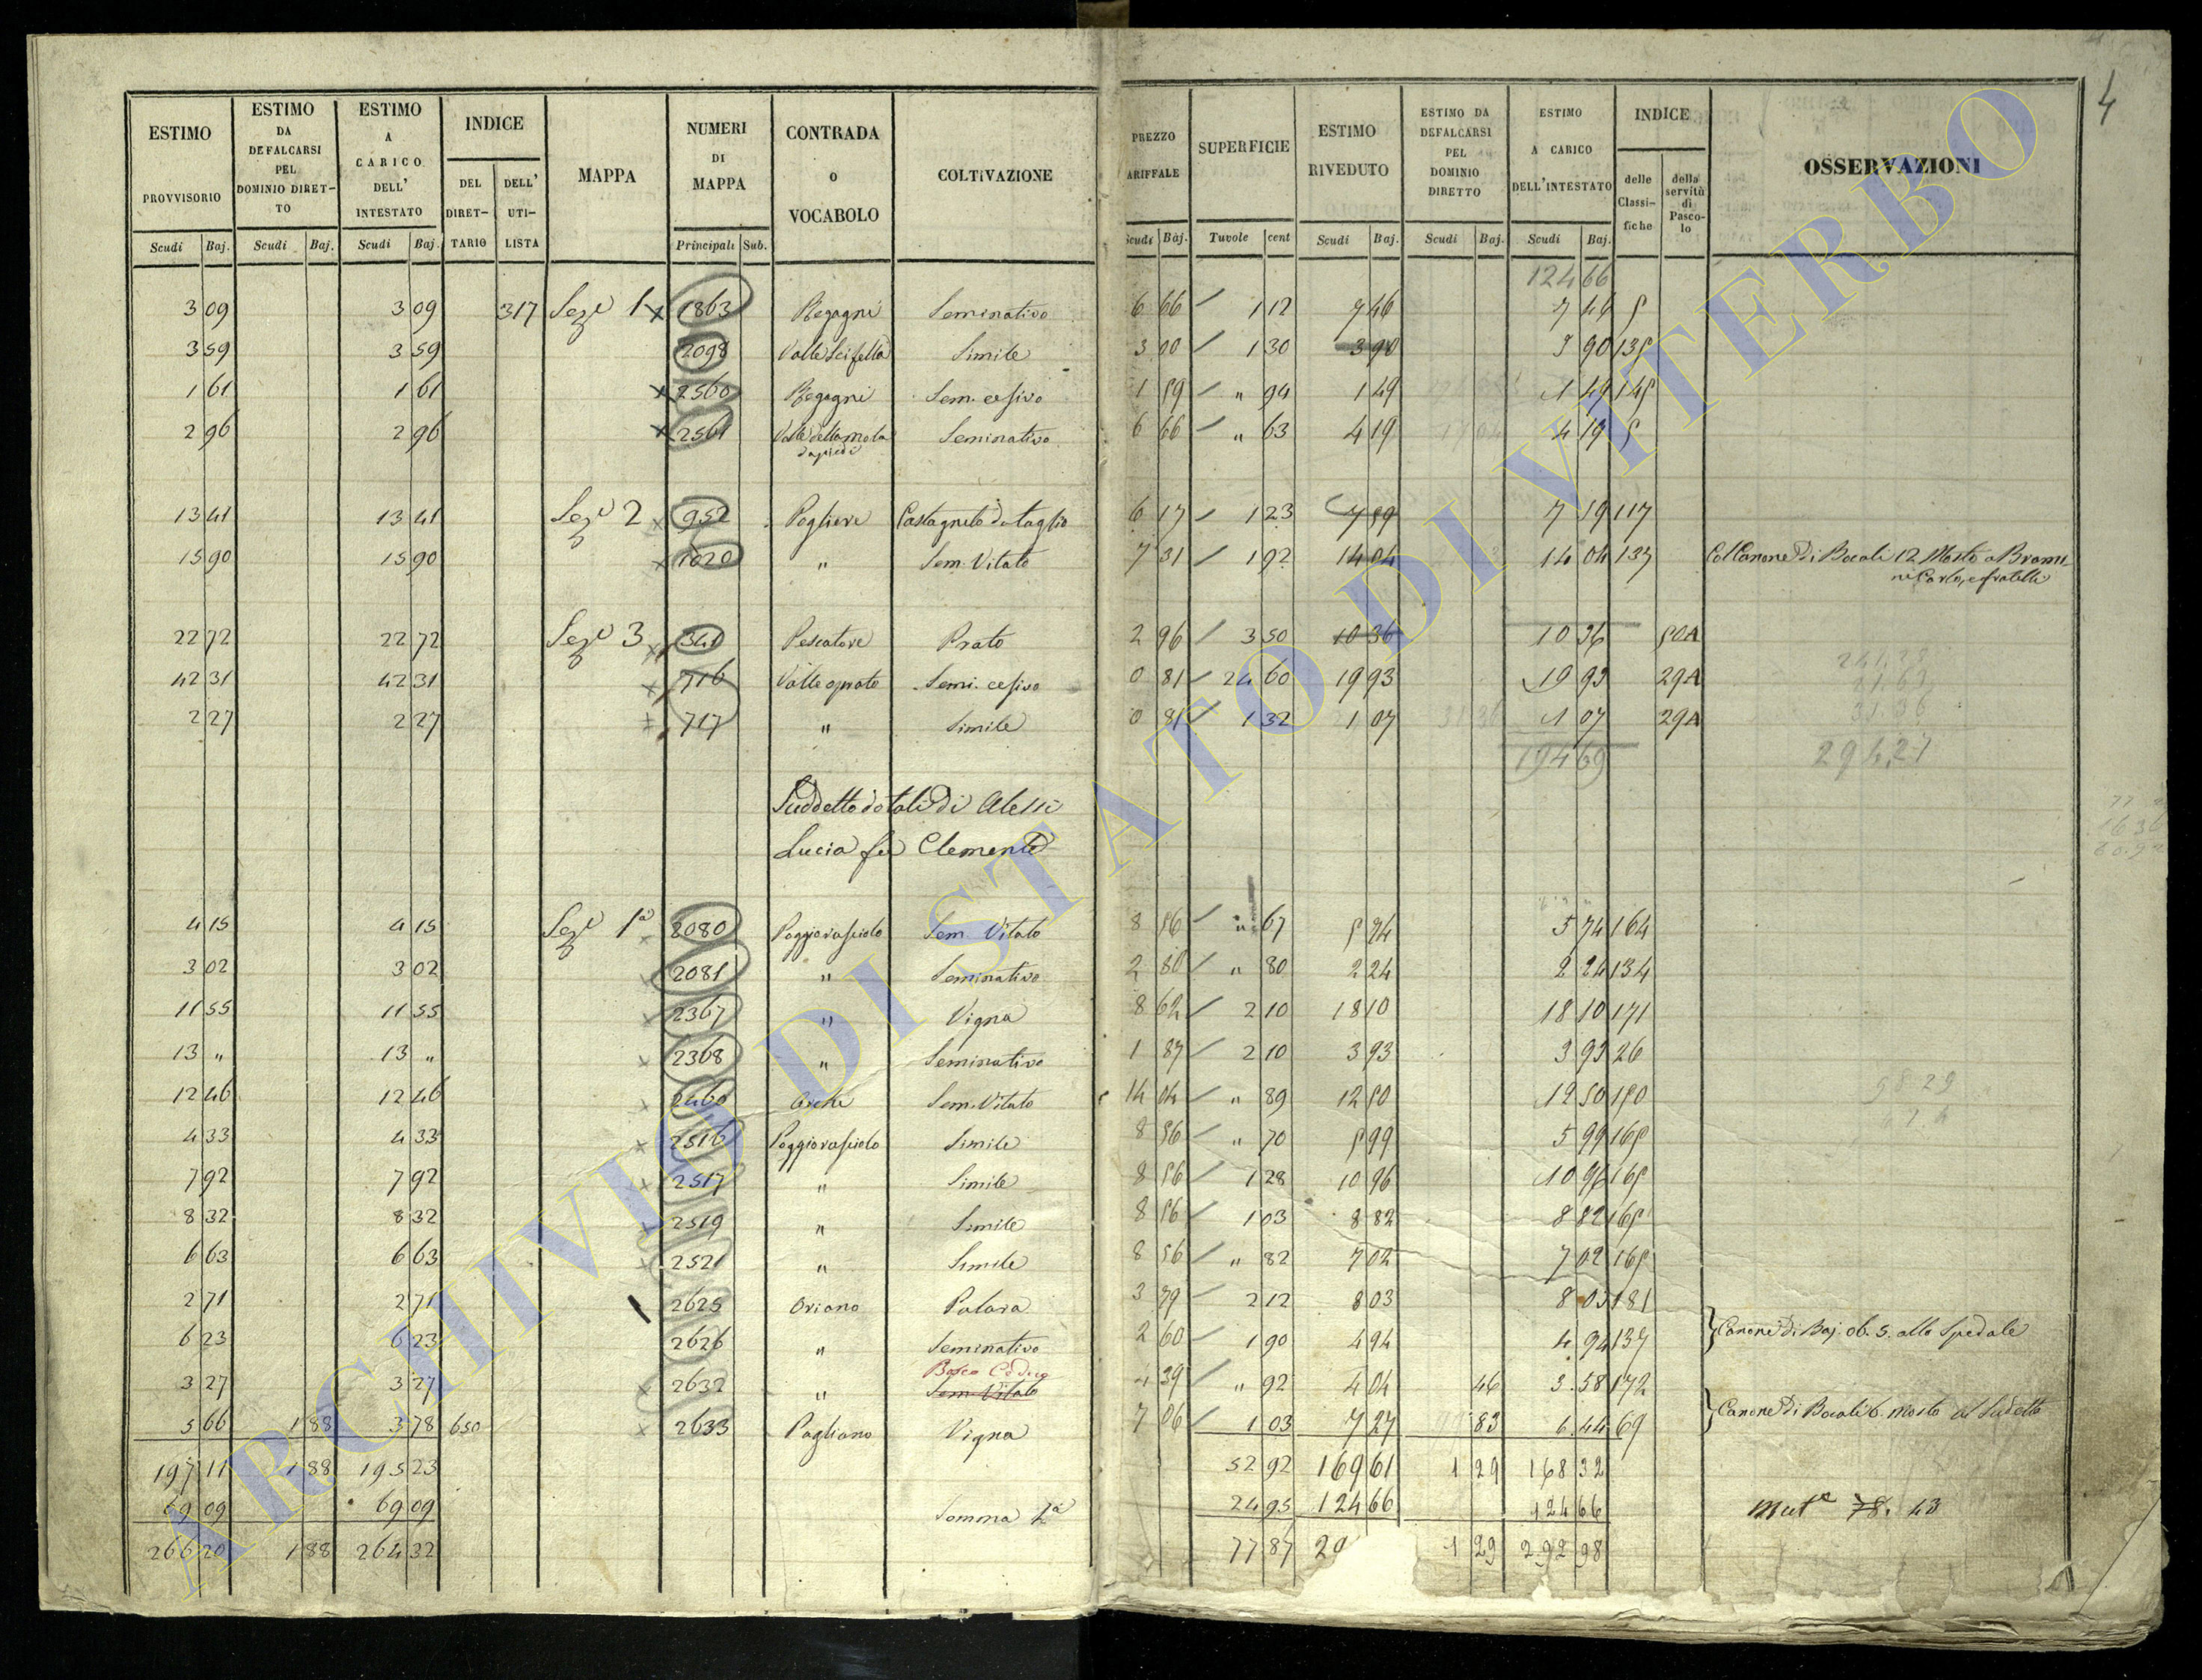 4
ESTIMO PROVVISORIO | ESTIMO DA DEFALCARSI PEL DOMINIO DIRET-TO | ESTIMO A CARICO DELL' INTESTATO | INDICE DEL DIRET-TARIO | DELL' UTI-LISTA | MAPPA | NUMERI DI MAPPA | CONTRADA O VOCABOLO | COLTIVAZIONE | PREZZO ARIFFALE | SUPERFICIE | ESTIMO RIVEDUTO | ESTIMO DA DEFALCARSI PEL DOMINIO DIRETTO | ESTIMO A CARICO DELL'INTESTATO | INDICE delle Classi-fiche | della servitù di Pasco-lo | OSSERVAZIONI
Scudi Baj. | Scudi Baj. | Scudi Baj. | Principali Sub. | Scudi Baj. | Tavole cent | Scudi Baj. | Scudi Baj. | Scudi Baj.
124 66
3 09 3 09 317 Sez.e 1 1863 Regagni Seminativo 6 66 1 12 7 46 7 46 5
3 59 3 59 2098 Simile 3 00 1 30 3 90 3 90 135
1 61 1 61 2560 Regagni Sem. cesivo 1 59 " 94 1 49 1 49 145
2 96 2 96 2561 Valle della mola Seminativo 6 66 " 63 4 19 4 19 5
13 41 13 41 Sez.e 2 952 Pogliere Castagneto da taglio 6 17 1 23 7 59 7 59 117
15 90 15 90 1020 " Sem. Vitato 7 31 1 92 14 04 14 04 137 Col Canone di Bocali 12 Mosto a
Carlo, e fratelli
22 72 22 72 Sez.e 3 341 Pescatore Prato 2 96 3 50 10 36 10 36 50A
42 31 42 31 716 Semi. cesivo 0 81 24 60 19 93 19 93 29A
2 27 2 27 717 " Simile 0 81 1 32 1 07 1 07 29A
194 69
294,27
Suddetto dotali di Alessi
Lucia fu Clemente
4 15 4 15 Sez.e 1a 2080 Poggiorasciolo Sem. Vitato 8 56 " 67 5 74 5 74 164
3 02 3 02 2081 " Seminativo 2 80 " 80 2 24 2 24 134
11 55 11 55 2367 " Vigna 8 62 2 10 18 10 18 10 171
13 " 13 " 2368 " Seminativo 1 87 2 10 3 93 3 93 26
12 46 12 46 2460 Sem. Vitato 14 04 " 89 12 50 12 50 150
4 33 4 33 2516 Poggiorasciolo Simile 8 56 " 70 5 99 5 99 165
7 92 7 92 2517 " Simile 8 56 1 28 10 96 10 96 165
8 32 8 32 2519 " Simile 8 56 1 03 8 82 8 82 165
6 63 6 63 2521 " Simile 8 56 " 82 7 02 7 02 165
2 71 2 71 2625 Oriano 3 79 2 12 8 03 8 03 181
6 23 6 23 2626 " Seminativo 2 60 1 90 4 94 4 94 137 Canone di Baj. 06. 5. allo Spedale
Bosco Ceduo
3 27 3 27 2632 " Sem. Vitato 4 39 " 92 4 04 46 3.58 172
5 66 1 88 3 78 650 2633 Pagliano Vigna 7 06 1 03 7 27 83 6.44 69 Canone di Bocali 6. Mosto al Sudetto
197 11 1 88 195 23 52 92 169 61 1 29 168 32
69 09 69 09 Somma 1a 24 95 124 66 124 66 78. 43
266 20 1 88 264 32 77 87 29 1 29 292 98
ARCHIVIO DI STATO DI VITERBO